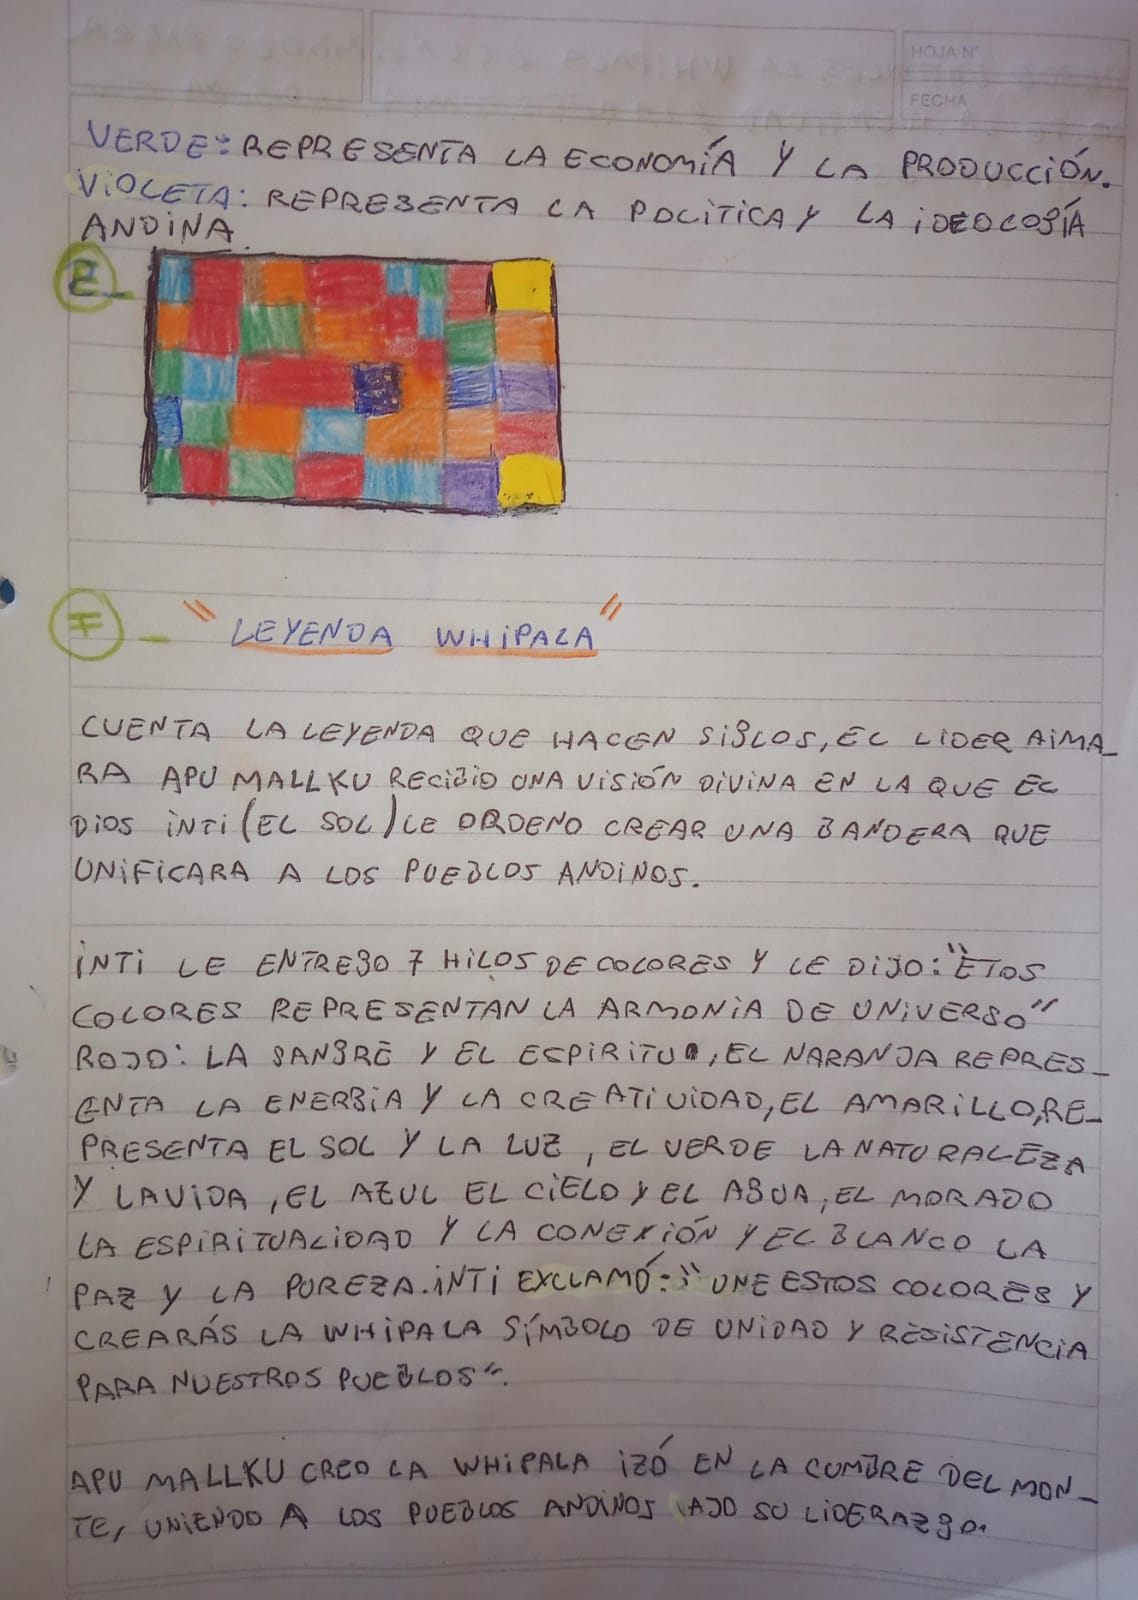 HOJA N°
FECHA
VERDE: REPRESENTA LA ECONOMÍA Y LA PRODUCCIÓN.
VIOLETA: REPRESENTA LA POLITICA Y LA IDEOLOGÍA
ANDINA.
E_
F_ "LEYENDA WHIPALA"
CUENTA LA LEYENDA QUE HACEN SIGLOS, EL LIDER AIMA_
RA APU MALLKU RECIBIO UNA VISIÓN DIVINA EN LA QUE EL
DIOS INTI (EL SOL) LE ORDENO CREAR UNA BANDERA QUE
UNIFICARA A LOS PUEBLOS ANDINOS.
INTI LE ENTREGO 7 HILOS DE COLORES Y LE DIJO: "ETOS
COLORES REPRESENTAN LA ARMONIA DE UNIVERSO"
ROJO: LA SANGRE Y EL ESPIRITU, EL NARANJA REPRES_
ENTA LA ENERGIA Y LA CREATIVIDAD, EL AMARILLO, RE_
PRESENTA EL SOL Y LA LUZ, EL VERDE LA NATURALEZA
Y LA VIDA, EL AZUL EL CIELO Y EL AGUA, EL MORADO
LA ESPIRITUALIDAD Y LA CONEXIÓN Y EL BLANCO LA
PAZ Y LA PUREZA. INTI EXCLAMÓ: "UNE ESTOS COLORES Y
CREARÁS LA WHIPALA SÍMBOLO DE UNIDAD Y RESISTENCIA
PARA NUESTROS PUEBLOS".
APU MALLKU CREO LA WHIPALA IZÓ EN LA CUMBRE DEL MON_
TE, UNIENDO A LOS PUEBLOS ANDINOS AJO SU LIDERAZGO.